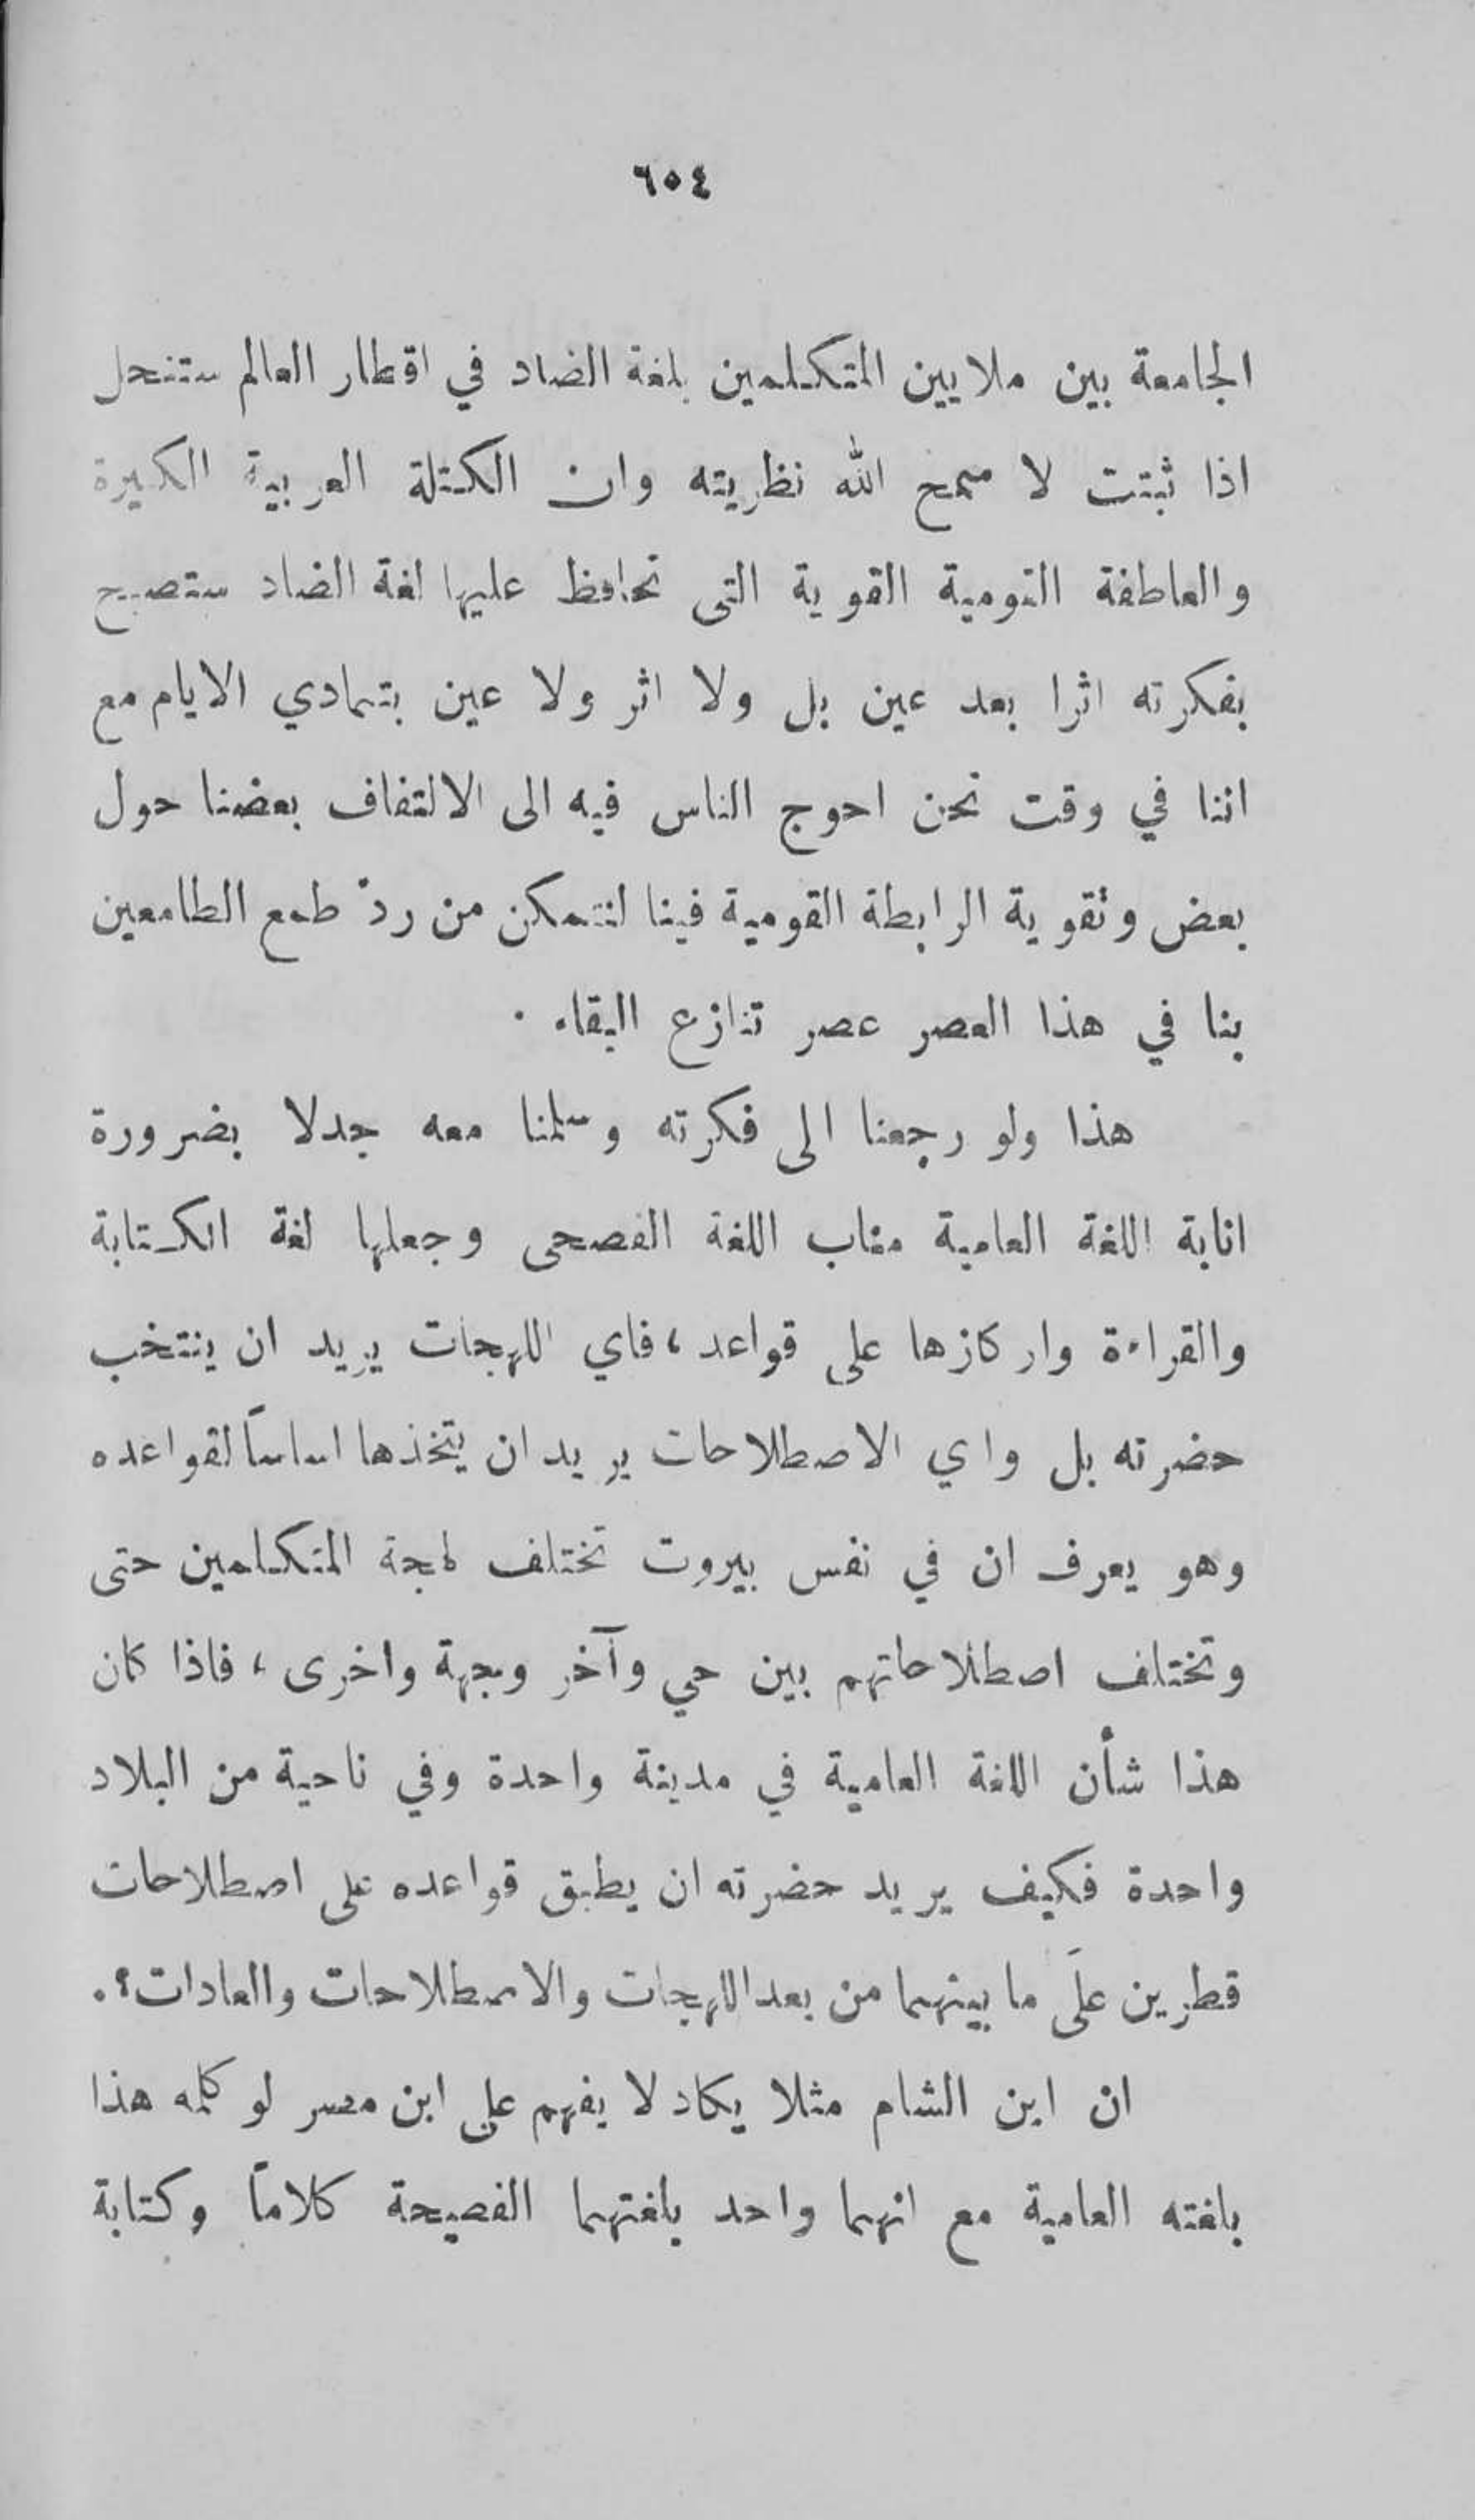 ٦٥٤
الجامعة بين ملايين المتكلمين بلغة الضاد في اقطار العالم ستنحل
اذا ثبتت لا سمح الله نظريته وان الكتلة العربية الكبيرة
والعاطفة القومية القوية التى تحافظ عليها لغة الضاد ستصبح
بفكرته اثرا بعد عين بل ولا اثر ولا عين بتمادي الايام مع
اننا في وقت نحن احوج الناس فيه الى الالتفاف بعضنا حول
بعض وتقوية الرابطة القومية فينا لنتمكن من ردّ طمع الطامعين
بنا في هذا العصر عصر تنازع البقاء .
هذا ولو رجعنا الى فكرته وسلمنا معه جدلا بضرورة
انابة اللغة العامية مناب اللغة الفصحى وجعلها لغة الكتابة
والقراءة واركازها على قواعد، فاي اللهجات يريد ان ينتخب
حضرته بل واي الاصطلاحات يريد ان يتخذها اساساً لقواعده
وهو يعرف ان في نفس بيروت تختلف لهجة المتكلمين حتى
وتختلف اصطلاحاتهم بين حي وآخر وجهة واخرى، فاذا كان
هذا شأن اللغة العامية في مدينة واحدة وفي ناحية من البلاد
واحدة فكيف يريد حضرته ان يطبق قواعده على اصطلاحات
قطرين علَى ما بينهما من بعد اللهجات والاصطلاحات والعادات؟.
ان ابن الشام مثلا يكاد لا يفهم على ابن مصر لو كلمه هذا
بلغته العامية مع انهما واحد بلغتهما الفصيحة كلاماً وكتابة